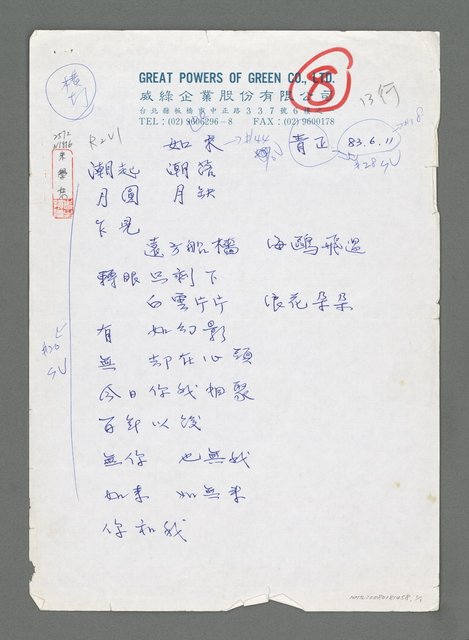 橫打
GREAT POWERS OF GREEN CO., LTD.
威綠企業股份有限公司
台北縣板橋市中正路337號6樓
TEL:(02)9606296-8 FAX:(02)9600178
8
13行
R2U1
如來
青正
83.6.11
潮起 潮落
月圓 月缺
乍見
遠方船檣 海鷗飛過
轉眼只剩下
白雲片片 浪花朵朵
有 如幻影
無 卻在心頭
今日你我相聚
百年以後
無你 也無我
如來 如無來
你和我